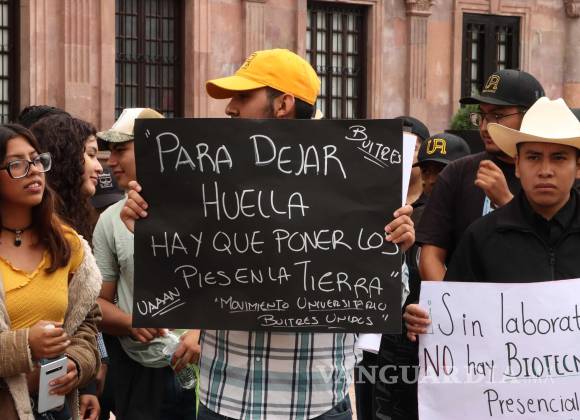 BUITRES
"PARA DEJAR
HUELLA
HAY QUE PONER LOS
PIES EN LA TIERRA"
UAAAN
"MOVIMIENTO UNIVERSITARIO
BUITRES UNIDOS"
¡Sin laborat
NO hay BIOTECN
Presencial
VANGUARDIA MX